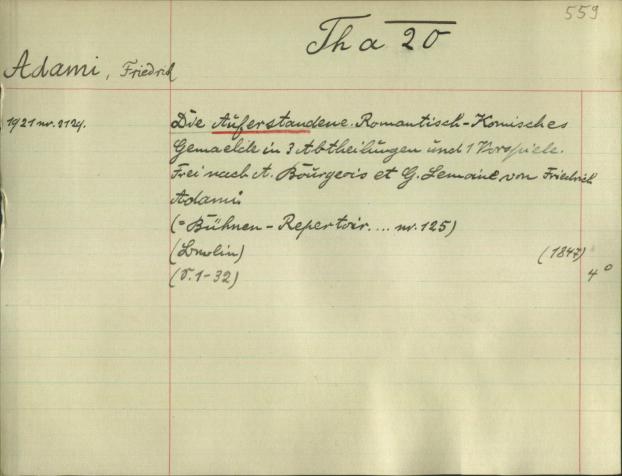 559
Th a 20
Adami, Friedrich
1921 nr. 2124.
Die Auferstandene. Romantisch-Komisches
Gemaelde in 3 Abtheilungen und 1 Vorspiele.
Frei nach A. Bourgeois et G. Lemoine von Friedrich
Adami
(= Bühnen-Repertoir.... nr. 125)
(Berlin) (1847)
(S. 1-32) 4°